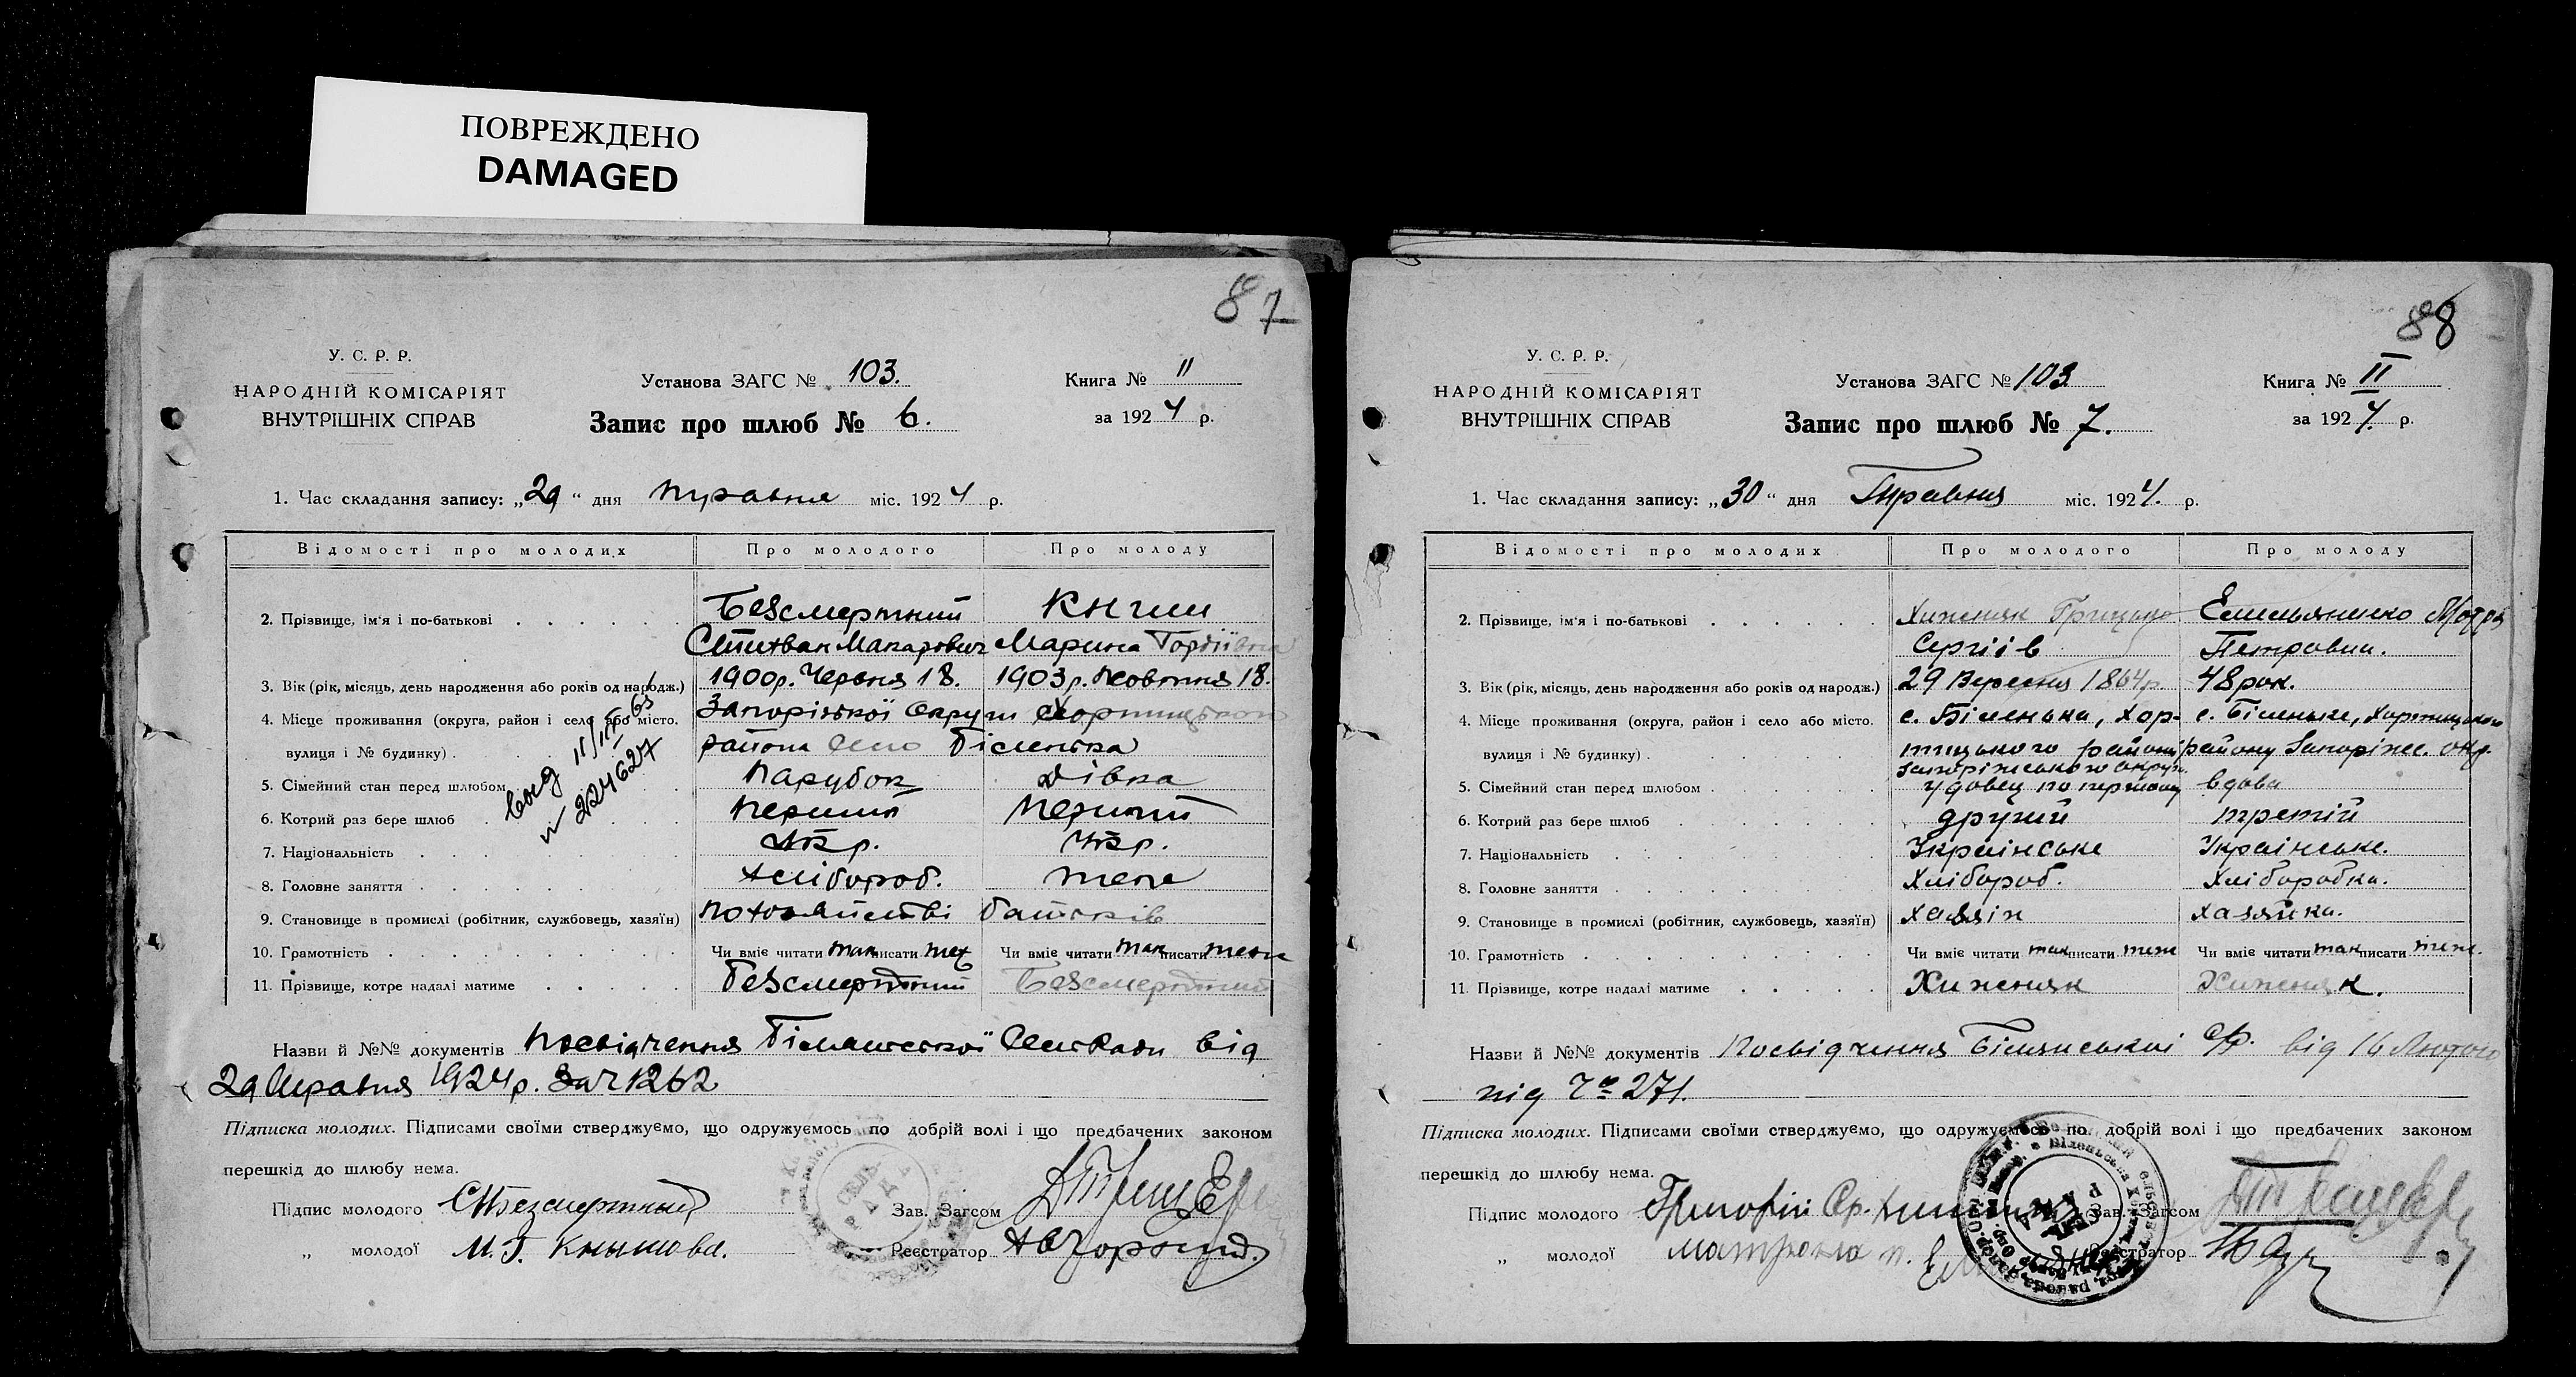 ПОВРЕЖДЕНО
DAMAGED
87
У. С. Р. Р.
НАРОДНІЙ КОМІСАРІЯТ
ВНУТРІШНІХ СПРАВ
Установа ЗАГС № 103.
Запис про шлюб № 6.
Книга № II
за 1924 р.
1. Час складання запису: „29“ дня травня міс. 1924 р.
Відомості про молодих Про молодого Про молоду
2. Прізвище, ім'я і по-батькові Безсмертний Книш
Степан Макарович Марина Гордіївна
3. Вік (рік, місяць, день народження або років од народж.) 1900р. Червня 18. 1903р. Жовтня 18.
4. Місце проживання (округа, район і село або місто. Запорізької Округи Хортицького
вулиця і № будинку) района село Біленька
5. Сімейний стан перед шлюбом Парубок Дівка
6. Котрий раз бере шлюб Перший Перший
7. Національність Укр. Укр.
8. Головне заняття Хлібороб. теж
9. Становище в промислі (робітник, службовець, хазяїн) По хозяйстві батьків
10. Грамотність Чи вміє читати так писати теж Чи вміє читати так писати теж
11. Прізвище, котре надалі матиме Безсмертний Безсмертний
выд 11/III 65
№ 224627
Назви й №№ документів Посвідчення Біленської Сельради від
29 Травня 1924р. За ч 1262
Підписка молодих. Підписами своїми стверджуємо, що одружуємось по добрій волі і що предбачених законом
перешкід до шлюбу нема.
Підпис молодого С Безсмертный Зав. Загсом
„ молодої М. Г. Кнышова. Реєстратор
СЕЛЬ
РАДА
88
У. С. Р. Р.
НАРОДНІЙ КОМІСАРІЯТ
ВНУТРІШНІХ СПРАВ
Установа ЗАГС № 103
Запис про шлюб № 7.
Книга № II
за 1924. р.
1. Час складання запису: „30“ дня Травня міс. 1924. р.
Відомості про молодих Про молодого Про молоду
2. Прізвище, ім'я і по-батькові Хижняк Грицько Емельяненко Мотря
Сергіїв Петровна.
3. Вік (рік, місяць, день народження або років од народж.) 29 Вересня 1864р. 48 рок.
4. Місце проживання (округа, район і село або місто. с. Біленька, Хор- с. Біленьке, Хортицького
вулиця і № будинку) тицького району району Запоріж. окр.
Запоріжського округи.
5. Сімейний стан перед шлюбом удовец по першому вдова
6. Котрий раз бере шлюб другий третій
7. Національність Українське Українське.
8. Головне заняття Хлібороб. Хліборобка.
9. Становище в промислі (робітник, службовець, хазяїн) хазяїн хазяйка.
10. Грамотність Чи вміє читати так писати теж Чи вміє читати так писати теж.
11. Прізвище, котре надалі матиме Хиженяк Хиженяк.
Назви й №№ документів Посвідчення Біленської с/р. від 16 Лютого
під Ч° 271.
Підписка молодих. Підписами своїми стверджуємо, що одружуємось по добрій волі і що предбачених законом
перешкід до шлюбу нема.
Підпис молодого Григорій Ср. Зав. Загсом
„ молодої матрона п. Реєстратор